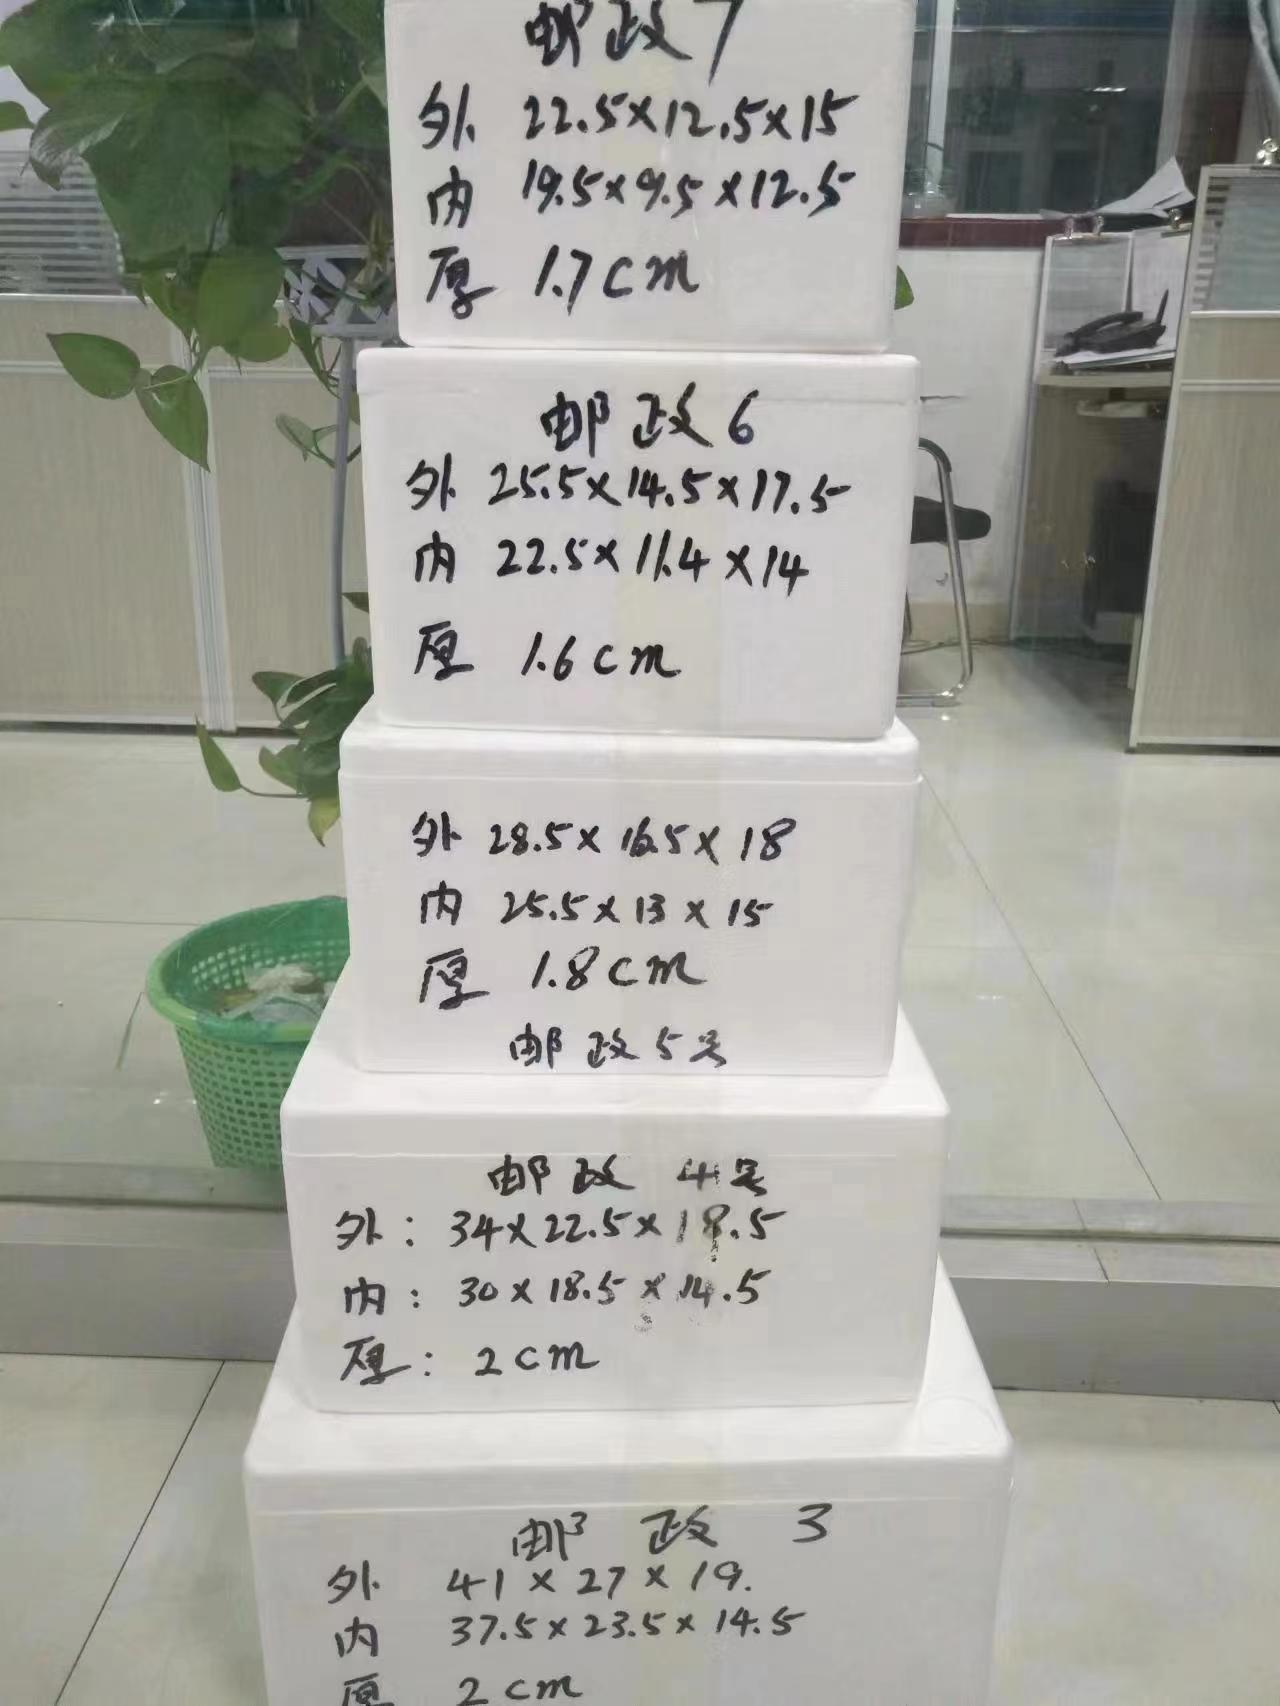 邮政7
外 22.5×12.5×15
内 19.5×9.5×12.5
厚 1.7cm
邮政6
外 25.5×14.5×17.5
内 22.5×11.4×14
厚 1.6cm
外 28.5×16.5×18
内 25.5×13×15
厚 1.8cm
邮政5号
邮政 4号
外：34×22.5×18.5
内：30×18.5×14.5
厚：2cm
邮政 3
外 41×27×19.
内 37.5×23.5×14.5
厚 2cm